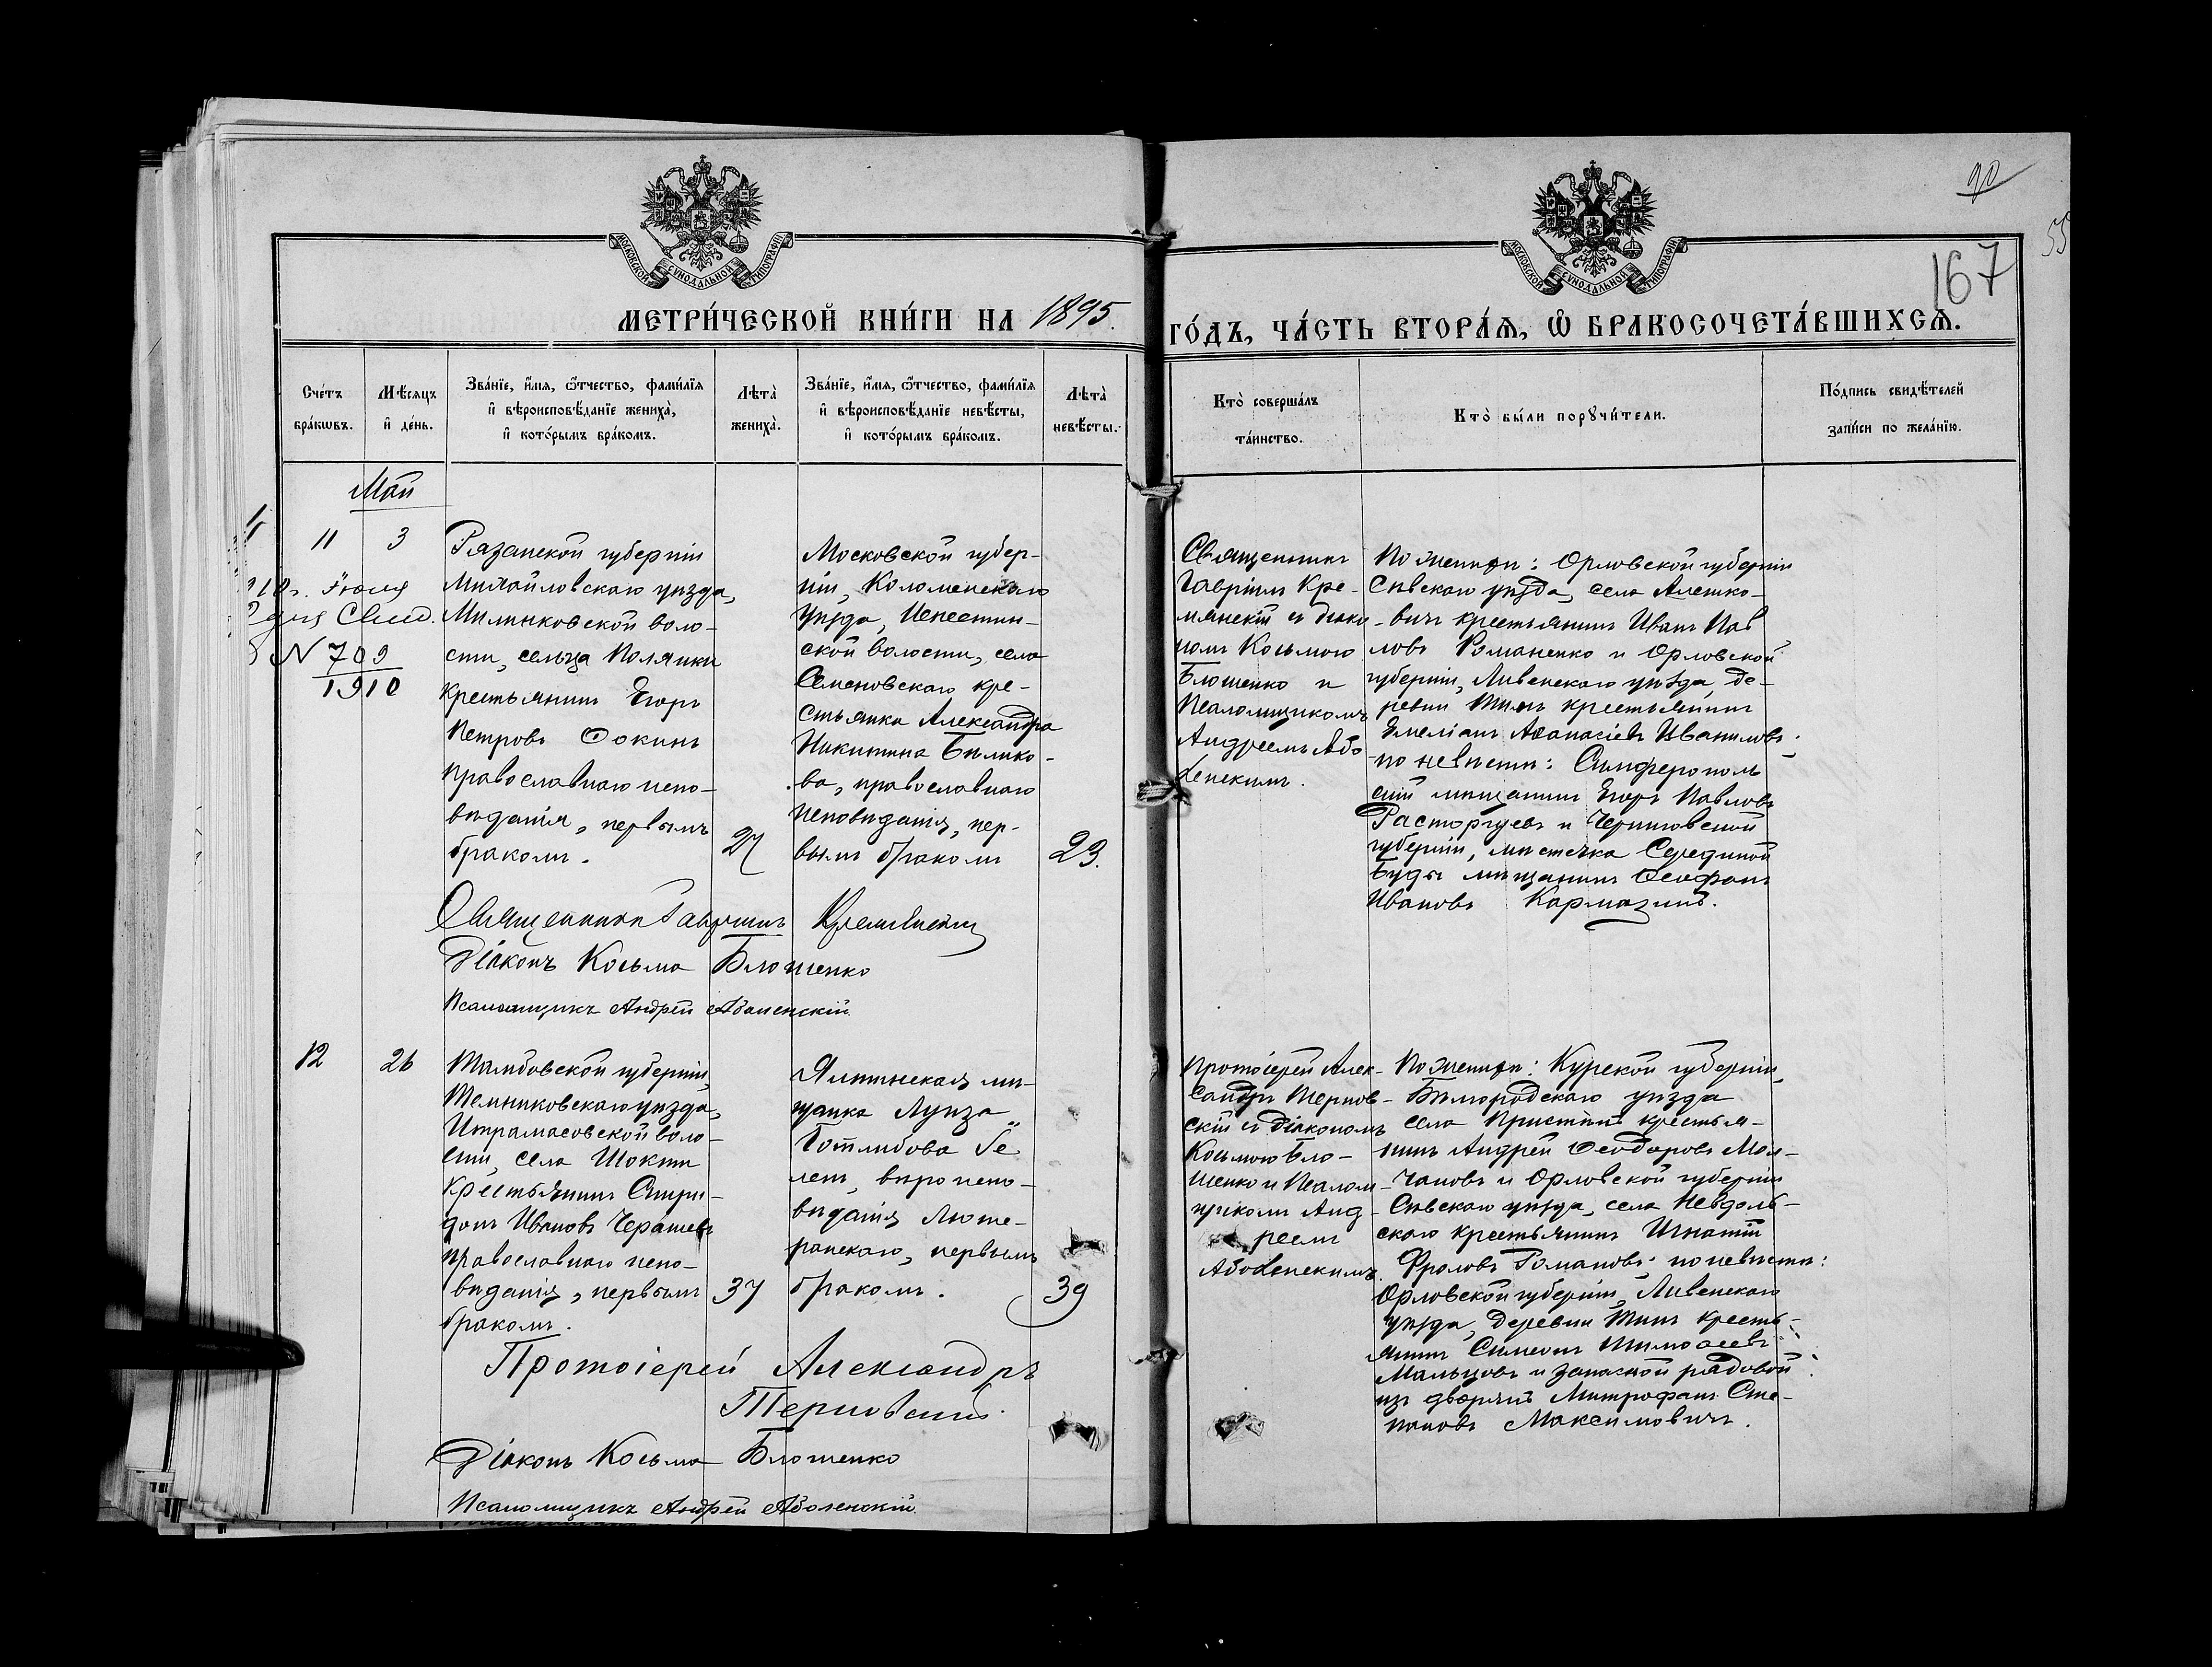 90
55
167
МОСКОВСКОЙ СУНОДАЛЬНОЙ ТИПОГРАФІИ
МОСКОВСКОЙ СУНОДАЛЬНОЙ ТИПОГРАФІИ
МЕТРИ́ЧЕСКОЙ КНИ́ГИ НА 1895.
ГО́ДЪ, ЧА́СТЬ ВТОРА́Я, Ѡ҆ БРАКОСОЧЕТА́ВШИХСЯ.
Сче́тъ
бра́кѡвъ.
Мѣ́сяцъ
и҆ де́нь.
Зва́нїе, и҆́мя, ѻ҆́тчество, фами́лїя
и҆ вѣроисповѣ́данїе жениха̀,
и҆ кото́рымъ бра́комъ.
Лѣта̀
жениха̀.
Зва́нїе, и҆́мя, ѻ҆́тчество, фами́лїя
и҆ вѣроисповѣ́данїе невѣ́сты,
и҆ кото́рымъ бра́комъ.
Лѣта̀
невѣ́сты.
Кто̀ соверша́лъ
та́инство.
Кто̀ бы́ли порꙋчи́тели.
По́дпись свидѣ́телей
за́писи по жела́нїю.
Май
11
3
Іюня
Свид.
N 709
1910
Рязанской губерніи
Михайловскаго уѣзда,
Милинковской воло-
сти, сельца Полянки
крестьянинъ Егоръ
Петровъ Ѳокинъ
православнаго испо-
вѣданія, первымъ
бракомъ.
27
Московской губер-
ніи, Коломенскаго
уѣзда,
ской волости, села
Семеновскаго кре-
стьянка Александра
Никитина Бѣлико-
ва, православнаго
исповѣданія, пер-
вымъ бракомъ
23.
Священникъ
Гавріилъ Кре-
мянскій и діако-
номъ Косьмою
Блошенко и
Псаломщикомъ
Андреемъ Або
ленскимъ.
По женихѣ: Орловской губерніи
Сѣвскаго уѣзда, села Алешко-
вичъ крестьянинъ Иванъ Пав
ловъ Романенко и Орловской
губерніи, Ливенскаго уѣзда, де-
ревни Тимъ крестьянинъ
Емеліанъ Аѳанасіевъ Иваниловъ;
по невѣстѣ: Симферополь
скій мѣщанинъ Егоръ Павловъ
Расторгуевъ и Черниговской
губерніи, мѣстечка Середина
Буды мѣщанинъ Ѳеофанъ
Ивановъ Кармазинъ.
Священникъ Гавріилъ Кремянскій
Діаконъ Косьма Блошенко
Псаломщикъ Андрей Аболенскій.
12
26
Тамбовской губерніи,
Темниковскаго уѣзда,
воло-
сти, села Шокши
крестьянинъ Спири-
донъ Ивановъ Черашевъ
православнаго испо-
вѣданія, первымъ
бракомъ.
37
Ялтинская мѣ-
щанка Луиза
Готлибова Ге
лень, вѣроиспо-
вѣданія Люте-
ранскаго, первымъ
бракомъ.
39
Протоіерей Алек-
сандръ Тернов-
скій и діакономъ
Косьмою Бло-
шенко и Псалом-
щикомъ Анд-
реемъ
Аболенскимъ.
По женихѣ: Курской губерніи,
Бѣлгородскаго уѣзда
села Пристѣни крестья-
нинъ Андрей Ѳеодоровъ Мол-
чановъ и Орловской губерніи
Сѣвскаго уѣзда, села Невдоль-
скаго крестьянинъ Игнатій
Фроловъ Романовъ; по невѣстѣ:
Орловской губерніи, Ливенскаго
уѣзда, деревни Тимъ кресть-
янинъ Симеонъ Тимоѳеевъ
Мальцовъ и запасной рядовой
изъ дворянъ Митрофанъ Сте-
пановъ Максимовичъ.
Протоіерей Александръ
Терновскій.
Діаконъ Косьма Блошенко
Псаломщикъ Андрей Аболенскій.